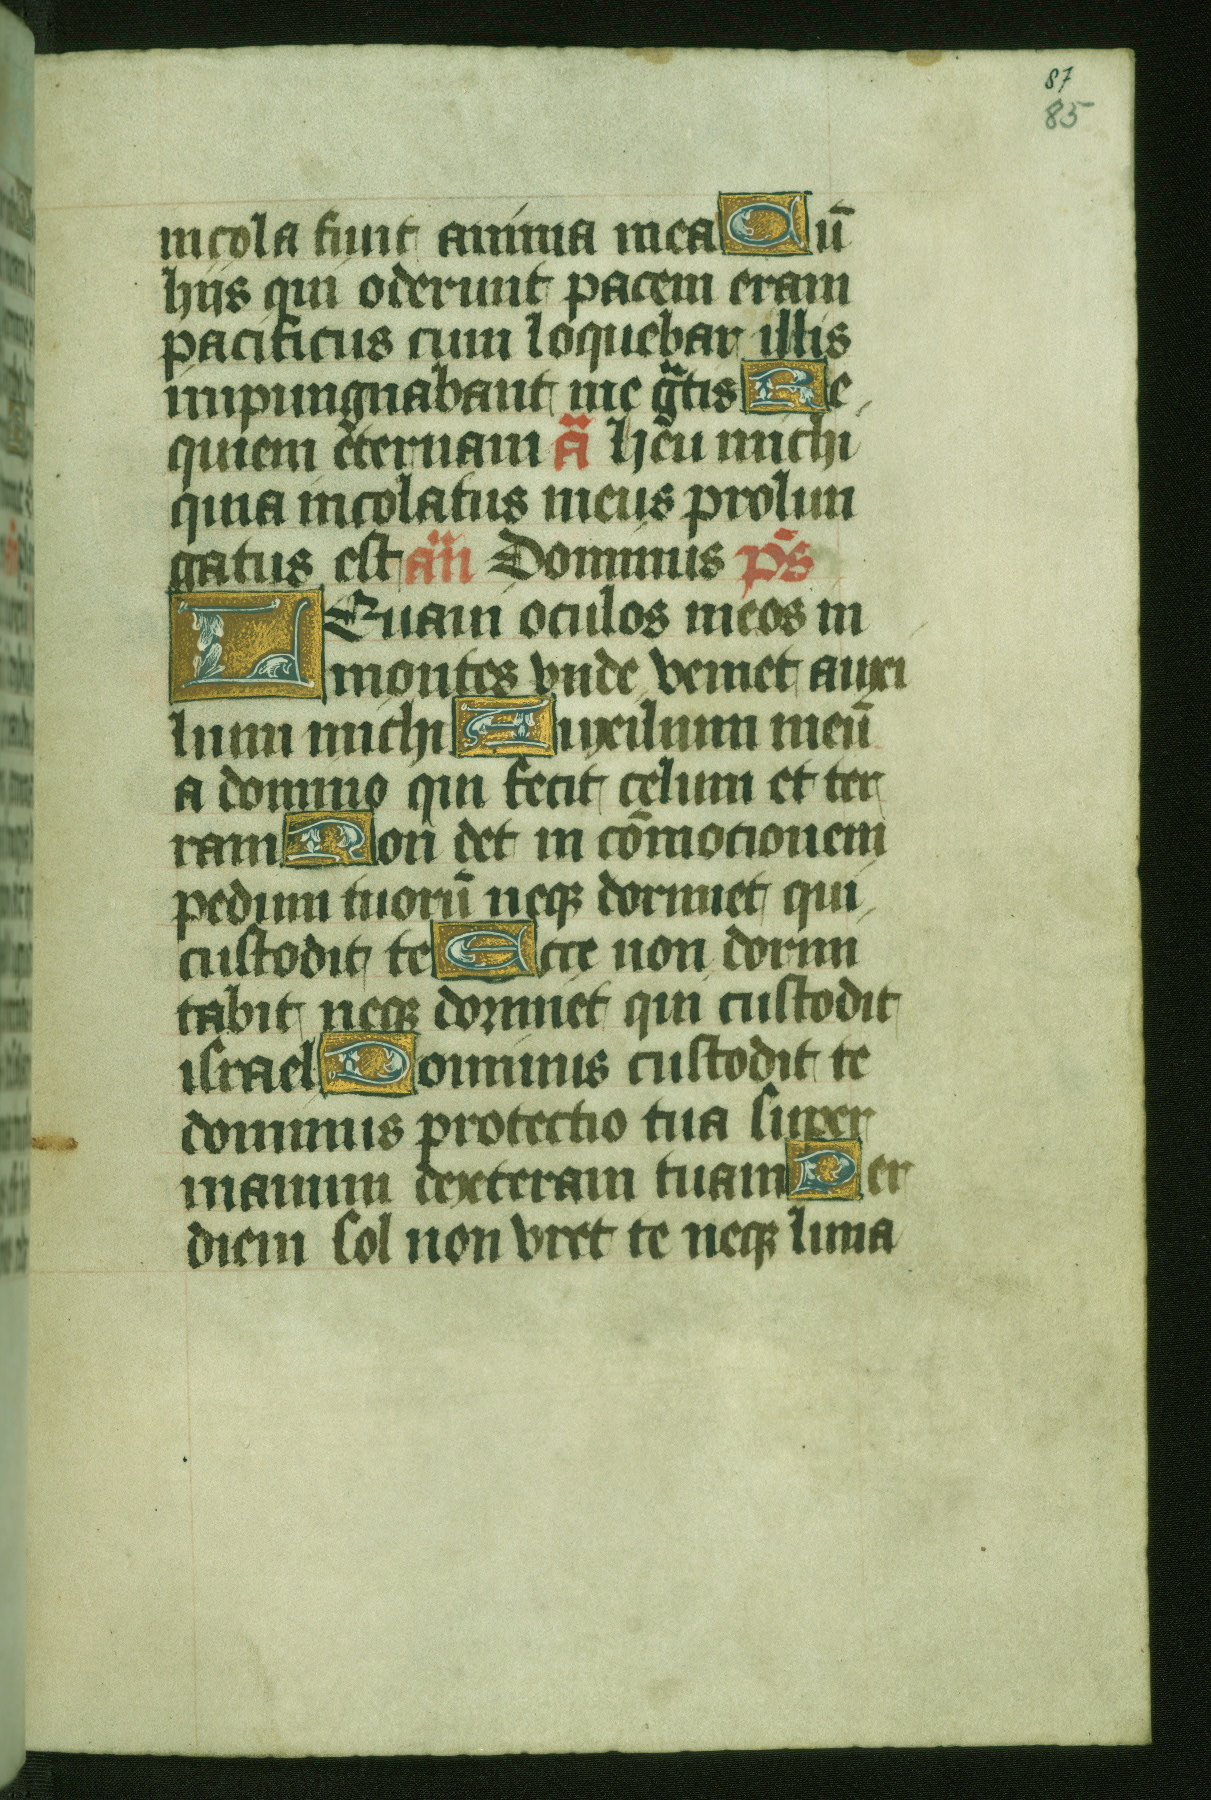 87
85
incola fuit anima mea Cū
hijs qui oderunt pacem eram
pacificus cum loquebar illis
inpungnabant me gᵃtis Re
quiem eternam ā heu michi
quia incolatus meus prolun
gatus est añ Dominus ps̄
LEuaui oculos meos in
montes vnde veniet auxi
lium michi Auxilium meū
a domino qui fecit celum et ter
ram Non det in cōmotionem
pedum tuorū neqꝫ dormiet qui
custodit te Ecce non dormi
tabit neqꝫ dormiet qui custodit
israel Dominus custodit te
dominus protectio tua super
manum dexteram tuam Per
diem sol non vret te neqꝫ luna